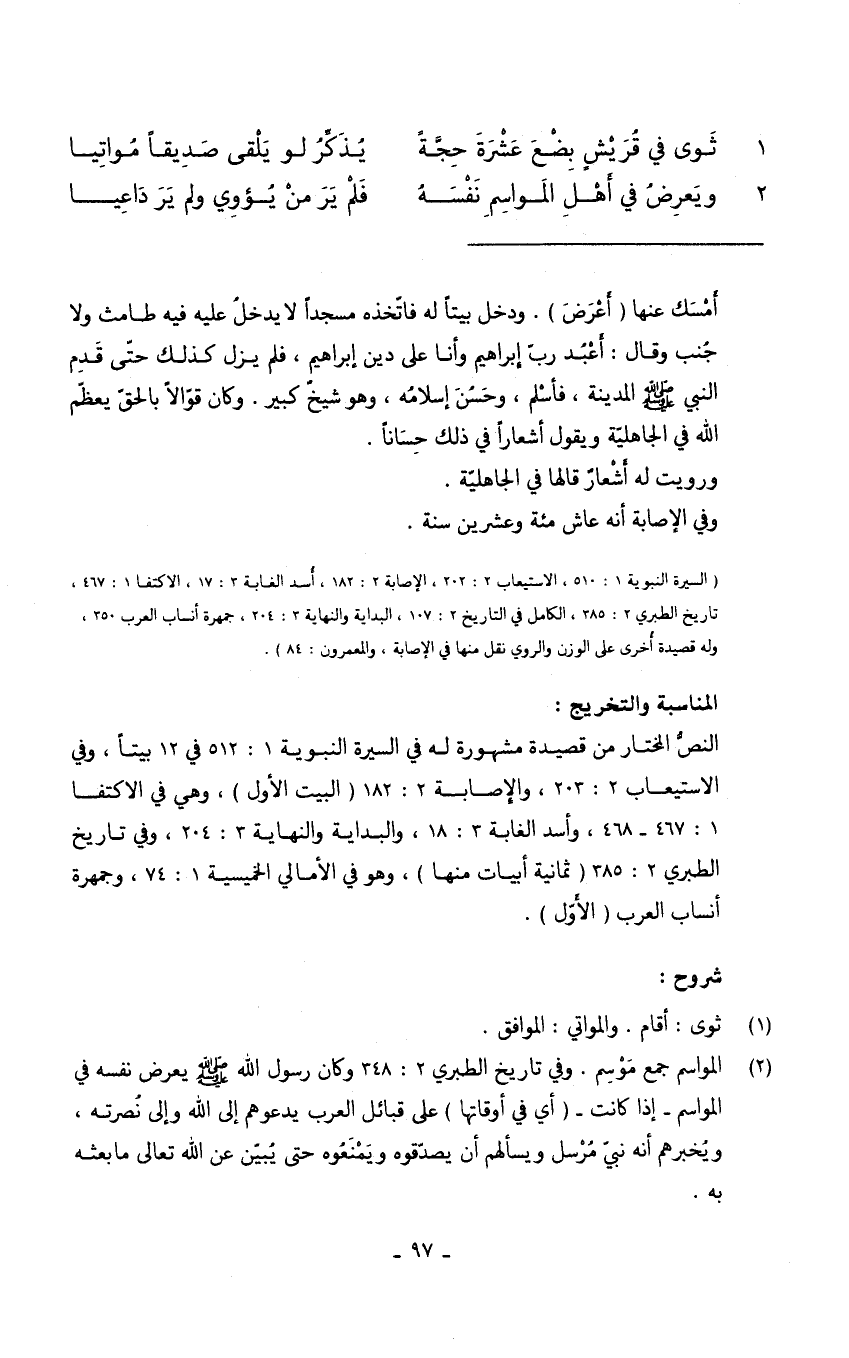 ١ ثَوى في قُرَيْشٍ بِضْعَ عَشْرَةَ حِجَّةً يُذَكِّرُ لو يَلْقى صَدِيقاً مُواتِيا
٢ ويَعرِضُ في أَهْلِ المَواسِمِ نَفْسَهُ فَلَمْ يَرَ مَنْ يُؤوِي ولم يَرَ دَاعِيا
أَمْسَك عنها ( أَعْرَضَ ) . ودخل بيتاً له فاتّخذه مسجداً لا يدخلُ عليه فيه طامث ولا
جُنب وقال : أَعْبُد ربّ إبراهيم وأنا على دين إبراهيم ، فلم يزل كذلك حتّى قَدِم
النبي ﷺ المدينة ، فأسْلم ، وحَسُنَ إسلامُه ، وهو شيخٌ كبير . وكان قوّالاً بالحقّ يعظّم
الله في الجاهليّة ويقول أشعاراً في ذلك حِسَاناً .
ورويت له أَشْعارٌ قالها في الجاهليّة .
وفي الإصابة أنه عاش مئة وعشرين سنة .
( السيرة النبوية ١ : ٥١٠ ، الاستيعاب ٢ : ٢٠٢ ، الإصابة ٢ : ١٨٢ ، أُسد الغابة ٣ : ١٧ ، الاكتفا ١ : ٤٦٧ ،
تاريخ الطبري ٢ : ٣٨٥ ، الكامل في التاريخ ٢ : ١٠٧ ، البداية والنهاية ٣ : ٢٠٤ ، جمهرة أنساب العرب ٣٥٠ ،
وله قصيدة أُخرى على الوزن والروي نقل منها في الإصابة ، والمعمرون : ٨٤ ) .
المناسبة والتخريج :
النصُّ المختار من قصيدة مشهورة له في السيرة النبوية ١ : ٥١٢ في ١٢ بيتاً ، وفي
الاستيعاب ٢ : ٢٠٣ ، والإصابة ٢ : ١٨٢ ( البيت الأول ) ، وهي في الاكتفا
١ : ٤٦٧ ـ ٤٦٨ ، وأسد الغابة ٣ : ١٨ ، والبداية والنهاية ٣ : ٢٠٤ ، وفي تاريخ
الطبري ٢ : ٣٨٥ ( ثمانية أبيات منها ) ، وهو في الأمالي الخميسية ١ : ٧٤ ، وجمهرة
أنساب العرب ( الأوّل ) .
شروح :
(١) ثوى : أقام . والمواتي : الموافق .
(٢) المواسم جمع مَوْسِم . وفي تاريخ الطبري ٢ : ٣٤٨ وكان رسول الله ﷺ يعرض نفسه في
المواسم ـ إذا كانت ـ ( أي في أوقاتها ) على قبائل العرب يدعوهم إلى الله وإلى نُصرته ،
ويُخبرهم أنه نبيّ مُرْسل ويسألهم أن يصدّقوه ويَمْنَعُوه حتى يُبيّن عن الله تعالى ما بعثه
به .
ـ ٩٧ ـ